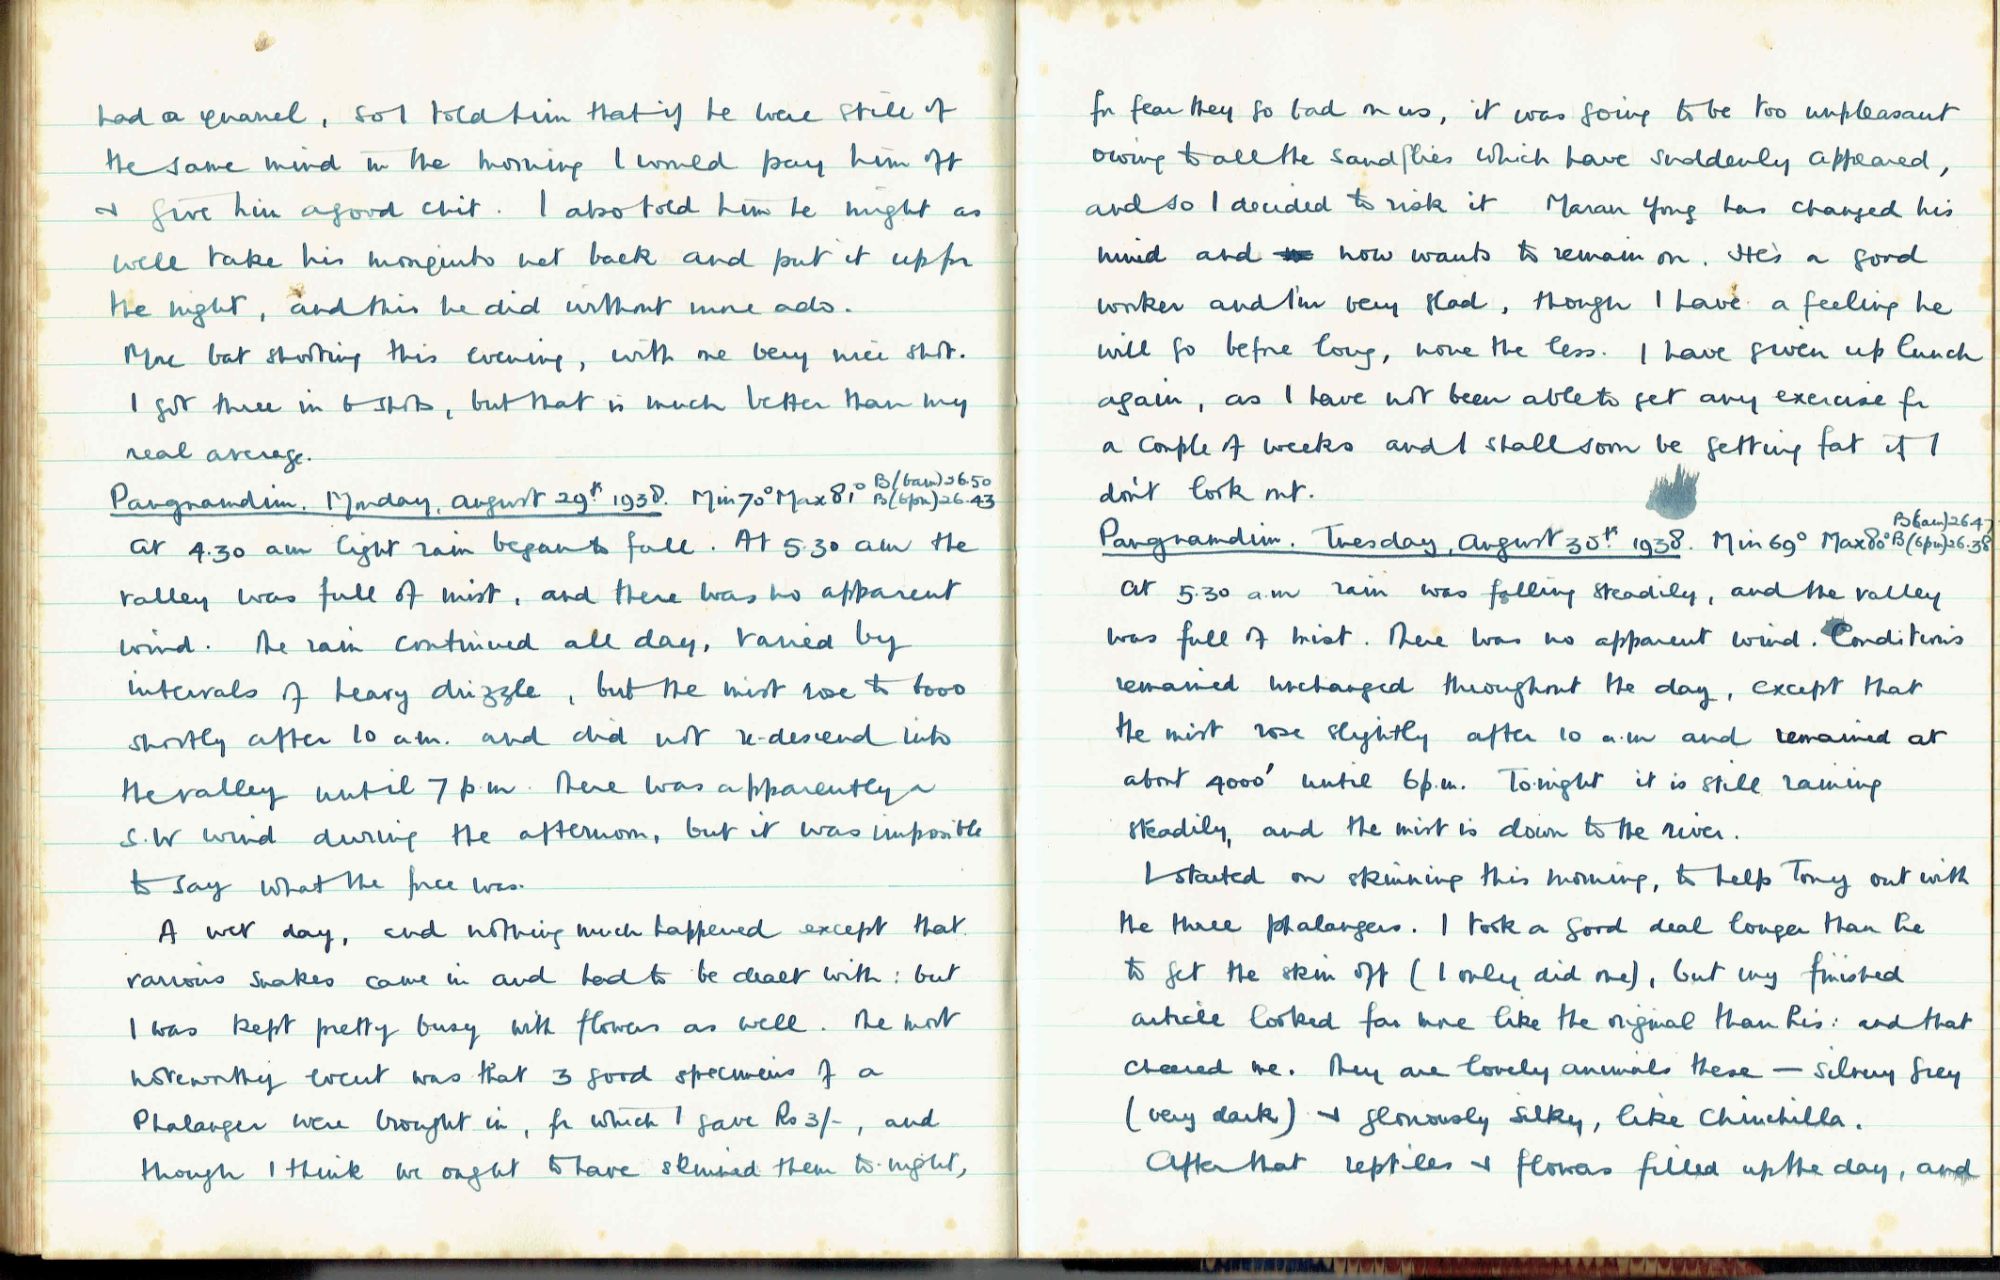 had a quarrel, so I told him that if he were still of
the same mind in the morning I would pay him off
& give him a good chit. I also told him he might as
well take his mosquito net back and put it up for
the night, and this he did without more ado.
More bat shooting this evening, with one very nice shot.
I got three in 6 shots, but that is much better than my
real average.
Pangnamdim. Monday, August 29th 1938. Min 70° Max 81° B(6am)26.50
B(6pm)26.43
At 4.30 am light rain began to fall. At 5.30 am the
valley was full of mist, and there was no apparent
wind. The rain continued all day, varied by
intervals of heavy drizzle, but the mist rose to 6000
shortly after 10 a.m. and did not re-descend into
the valley until 7 p.m. There was apparently a
S.W wind during the afternoon, but it was impossible
to say what the force was.
A wet day, and nothing much happened except that
various snakes came in and had to be dealt with: but
I was kept pretty busy with flowers as well. The most
noteworthy event was that 3 good specimens of a
Phalanger were brought in, for which I gave Rs 3/-, and
though I think we ought to have skinned them to-night,
for fear they go bad on us, it was going to be too unpleasant
owing to all the sandflies which have suddenly appeared,
and so I decided to risk it Maran Yong has changed his
mind and now wants to remain on. He's a good
worker and I'm very glad, though I have a feeling he
will go before long, none the less. I have given up lunch
again, as I have not been able to get any exercise for
a couple of weeks and I shall soon be getting fat if I
don't look out.
Pangnamdim. Tuesday, August 30th 1938. Min 69° Max 80° B(6am)26.47
B(6pm)26.38
At 5.30 a.m rain was falling steadily, and the valley
was full of mist. There was no apparent wind. Conditions
remained unchanged throughout the day, except that
the mist rose slightly after 10 a.m and remained at
about 4000' until 6 p.m. To-night it is still raining
steadily, and the mist is down to the river.
I started on skinning this morning, to help Tony out with
the three phalangers. I took a good deal longer than he
to get the skin off (I only did one), but my finished
article looked far more like the original than his: and that
cheered me. They are lovely animals these — silvery grey
(very dark) & gloriously silky, like Chinchilla.
After that reptiles & flowers filled up the day, and